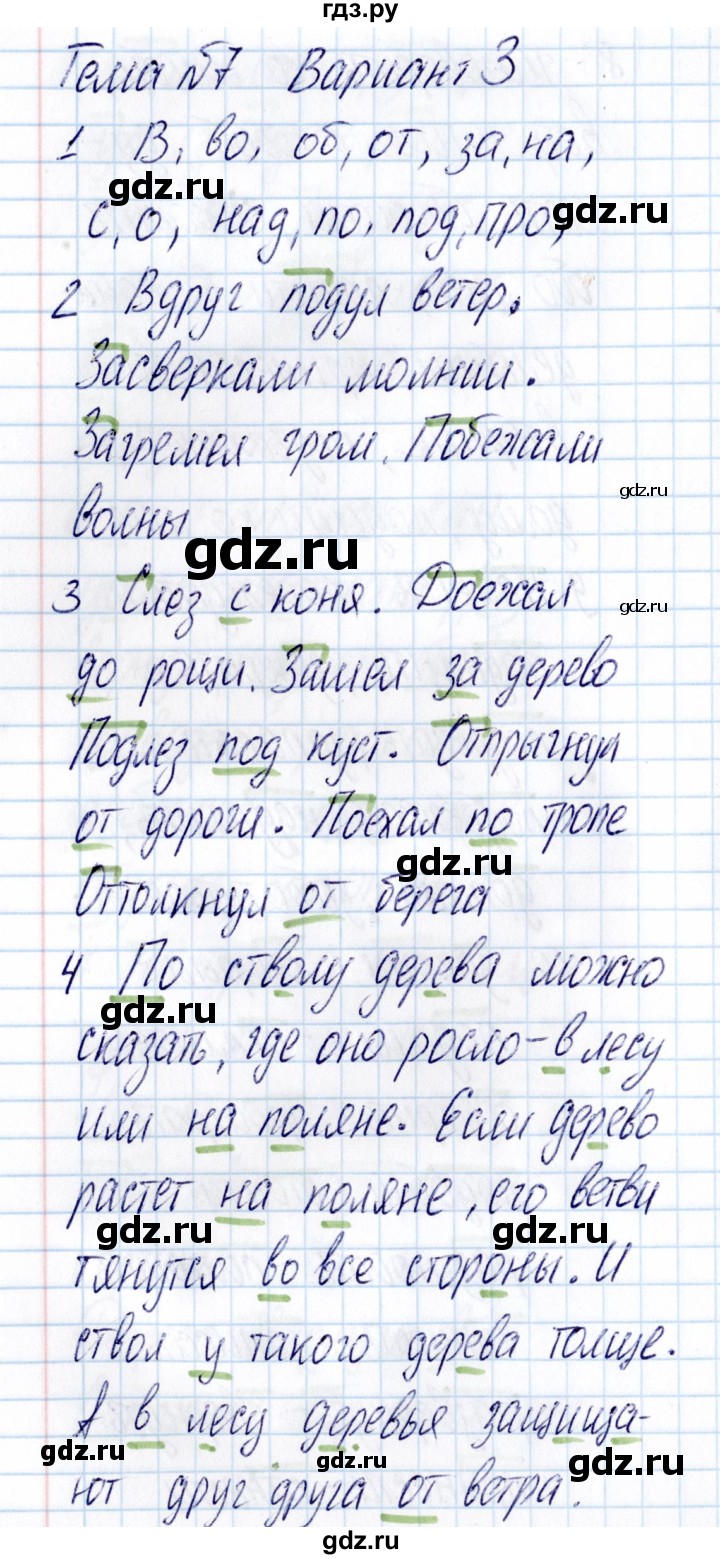 гдз.ру
Тема №7 Вариант 3
1 В, во, об, от, за, на,
gdz.ru
с, о, над, по, под, про,
gdz.ru
2 Вдруг подул ветер.
Засверкали молнии.
Загремел гром. Побежали
gdz.ru
волны
gdz.ru
3 Слез с коня. Доехал
gdz.ru
до рощи. Зашел за дерево
Подлез под куст. Отпрыгнул
от дороги. Поехал по тропе
gdz.ru
Оттолкнул от берега
4 По стволу дерева можно
gdz.ru
сказать, где оно росло - в лесу
или на поляне. Если дерево
растет на поляне, его ветви
gdz.ru gdz.ru
тянутся во все стороны. И
ствол у такого дерева толще.
А в лесу деревья защища-
gdz.ru gdz.ru gdz.ru
ют друг друга от ветра.
gdz.ru